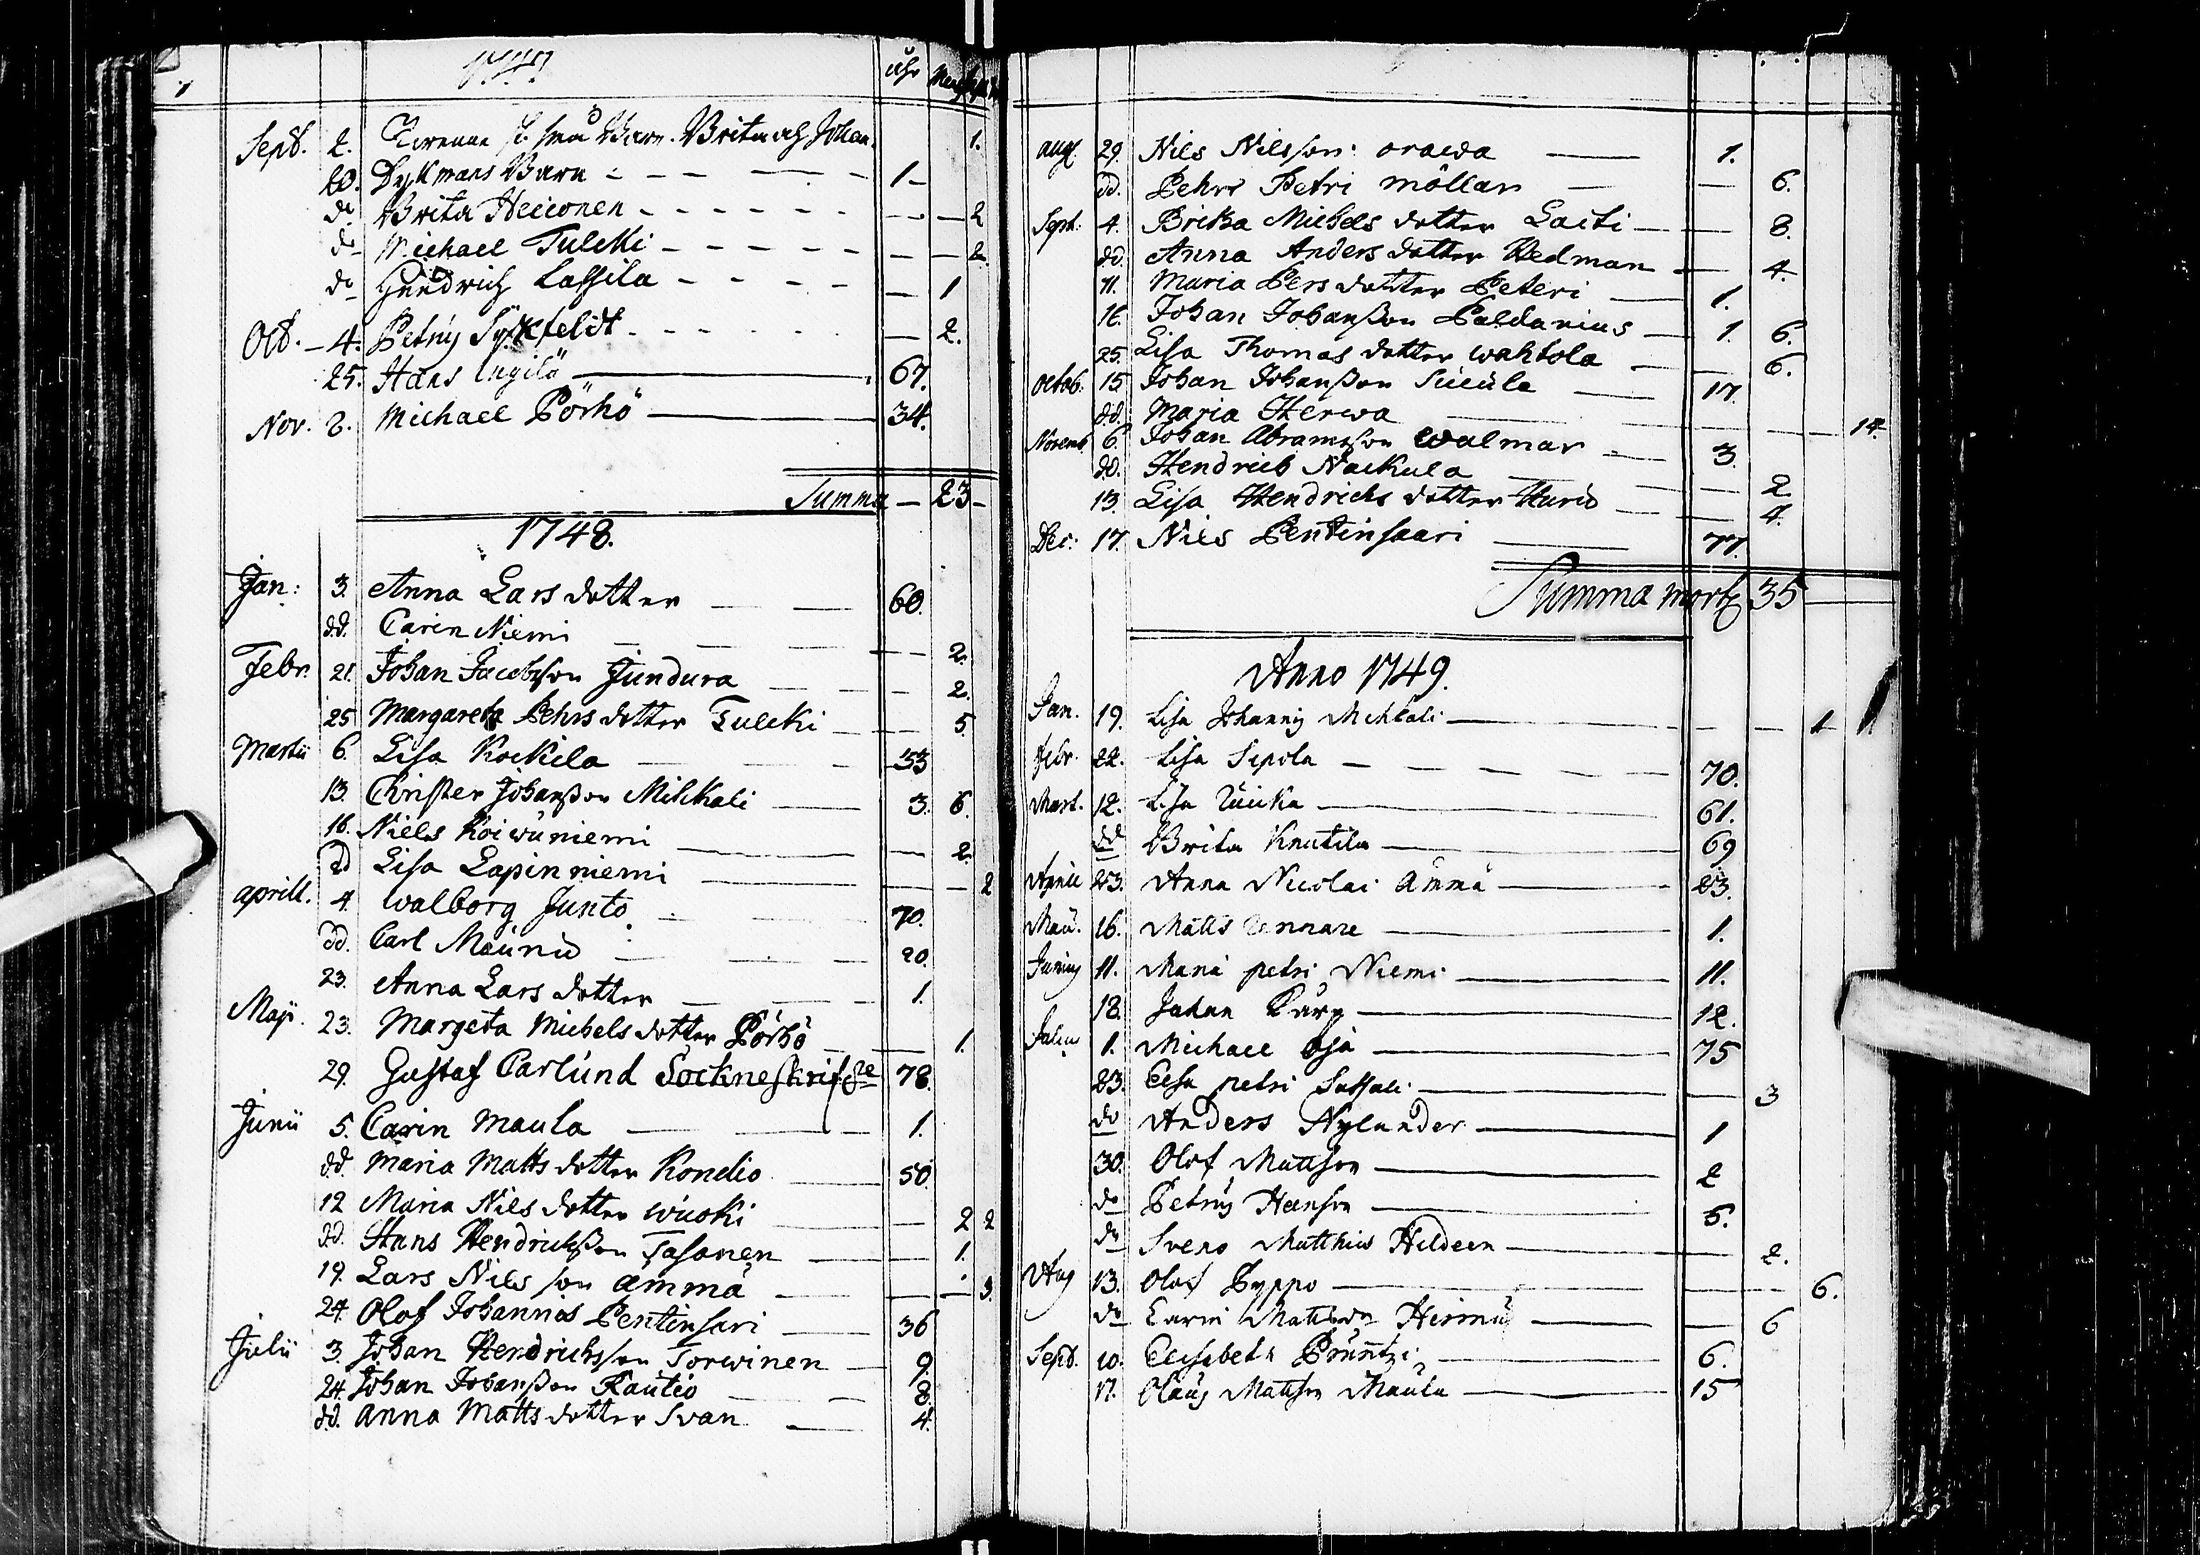 1747.
åhr
Sept. 2. Barn. Brita och Johan. 1.
20. Dyckmans Barn 1
do Brita Heiconen 2
do Michael Tulcki 2
do Hindrich Lassila 1
Oct. 4. Petrus 2.
25. Hans 67.
Nov. 8. Michael Pörhö 34.
Summa 23
1748.
Jan: 3. Anna Lars dotter 60.
dd. Carin Niemi 2.
Febr. 21. Johan Jacobsson Jundura 2.
25 Margareta Pehrs dotter Tulcki 5.
Martii 6. Lisa Kockila 53
13. Christer Johansson Mihkali 3. 6.
16. Niels Koiwuniemi 2.
dd Lisa Lapinniemi 2
aprill. 4. Walborg Junto 70.
dd. Carl Maunu 20.
23. Anna Lars dotter 1.
Maji. 23. Margeta Michels dotter Pörhö 1.
29. Gustaf Carlund Sockneskrif 78.
Junii 5. Carin Maula 1.
dd. Maria Matts dotter Kondio 50.
12 Maria Nils dotter Wuoki 2 2
dd. Hans Hendricksson Tasanen 1.
19. Lars Nils son Ämmä 3.
24. Olof Johannis Pentinsari 36
Julii 3. Johan Hendrichsson Torwinen 9.
24. Johan Johansson Rautio 8.
dd. Anna Matts dotter Svan 4.
aug. 29. Nils Nilsson orawa 1.
dd. Pehr Petri möllari 6.
Sept. 4. Brita Michels dotter Lacti 8.
dd. Anna Anders dotter Hedman 4.
11. Maria Pers dotter Peteri 1.
16. Johan Johansson Paldanius 1. 6.
25. Lisa Thomas dotter Wahtola 6.
Octob. 15. Johan Johansson Siuula 17.
dd. Maria Herwa 14.
Novemb. 6. Johan Abramsson Walmar 3.
dd. Hendrich Nackula 2
13. Lisa Hendrichs dotter Hurio 4.
Dec: 17. Nils Pentinsaari 77.
Summa 35
Anno 1749.
Jan. 19. Lisa Johannis Mihkali 1
Febr. 22. Lisa Sipola 70.
Mart. 12. Lisa 61.
dd Brita Knutila 69
Aprill 23. Anna Nicolai Ämmä 23.
Maii. 16. Matts 1.
Junius 11. Maria petri Niemi 11.
18. Johan Karp 12.
Julius 1. Michael Ojà 75
23. Elsa petri 3
do Anders Nylander 1
30. Olof Mattson 2
do Petrus Hanson 5.
do Sveno Matthias Hildeen 2.
Aug 13. Olof Pyppo 6.
do Carin 6
Sept. 10. Elisabeth 6.
17. Olaus Mattson Maula 15